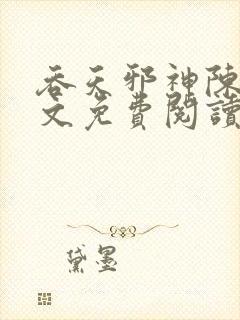 吞天邪神陳
文免費閱讀
黛墨